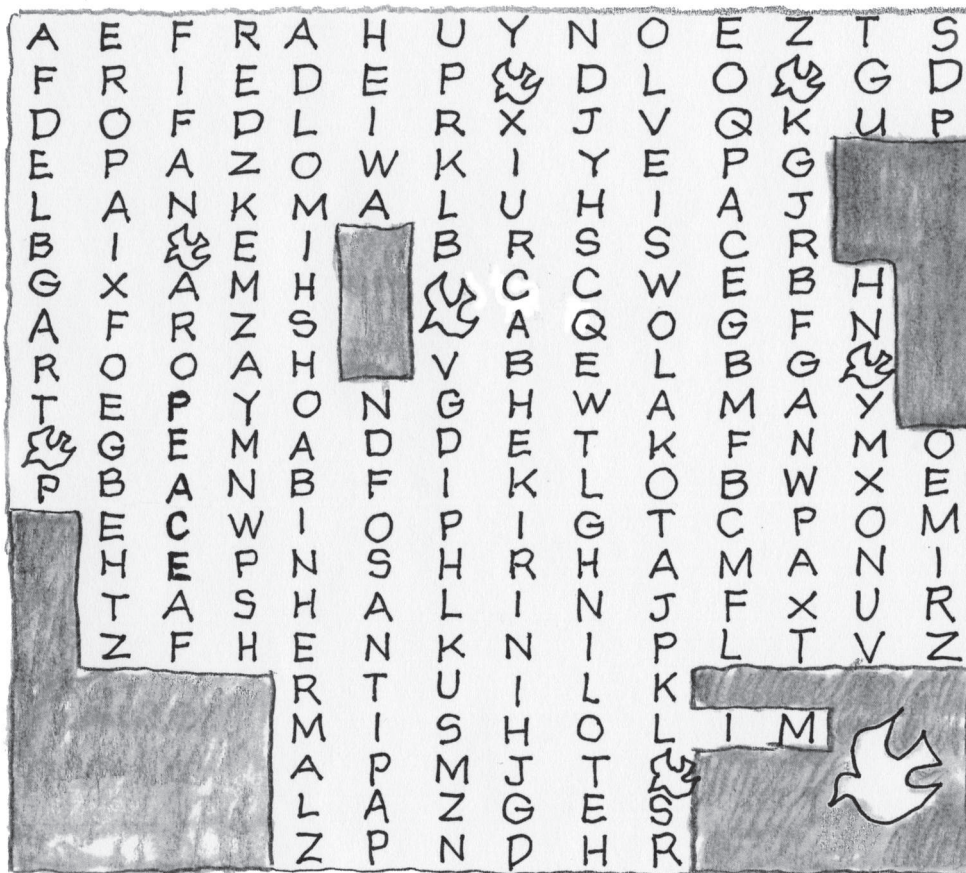 A E F R A H U Y N O E Z T S
F R I E D E P D L O G D
D O F D L I R X J V Q K U P
E P A Z O W K I Y E P G
L A N K M A L U H I A J
B I E I B R S S C R
G X A M H G C W E B H
A F R Z S A Q O G F N
R O O A H V B E L B G
T E P Y O N G H W A M A Y
G E M A D D E T K F N M O
P B A N B F I K L O B W X E
E C W I O P I G T C P O M
H E P N S H R H A M A N I
T A S H A L I N J F X U R
Z F H E N K N I P L T V Z
R T U I L K
M I S H O L I M
A P M J T
L A Z G E S
Z P N D H R